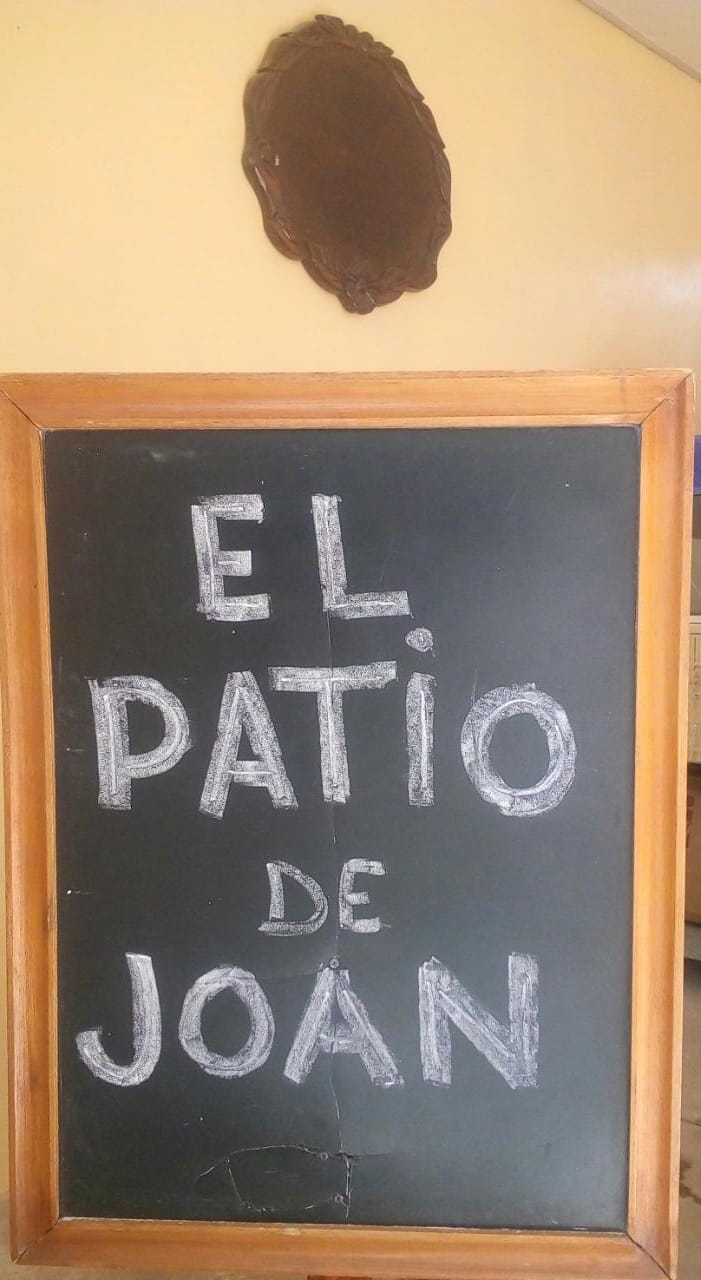 EL
PATiO
DE
JOAN